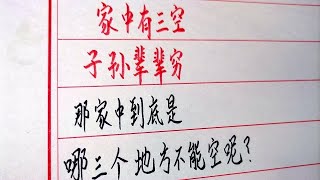 家中有三空
子孙辈辈穷
那家中到底是
哪三个地方不能空呢？